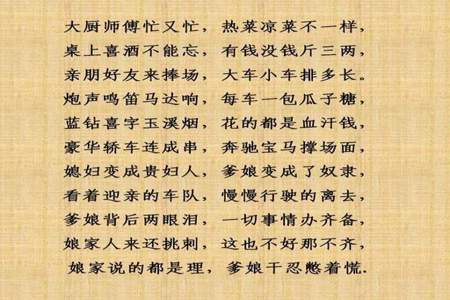 大厨师傅忙又忙，热菜凉菜不一样，
桌上喜酒不能忘，有钱没钱斤三两，
亲朋好友来捧场，大车小车排多长。
炮声鸣笛马达响，每车一包瓜子糖，
蓝钻喜字玉溪烟，花的都是血汗钱，
豪华轿车连成串，奔驰宝马撑场面，
媳妇变成贵妇人，爹娘变成了奴隶，
看着迎亲的车队，慢慢行驶的离去，
爹娘背后两眼泪，一切事情办齐备，
娘家人来还挑刺，这也不好那不齐，
娘家说的都是理，爹娘干忍憋着慌.